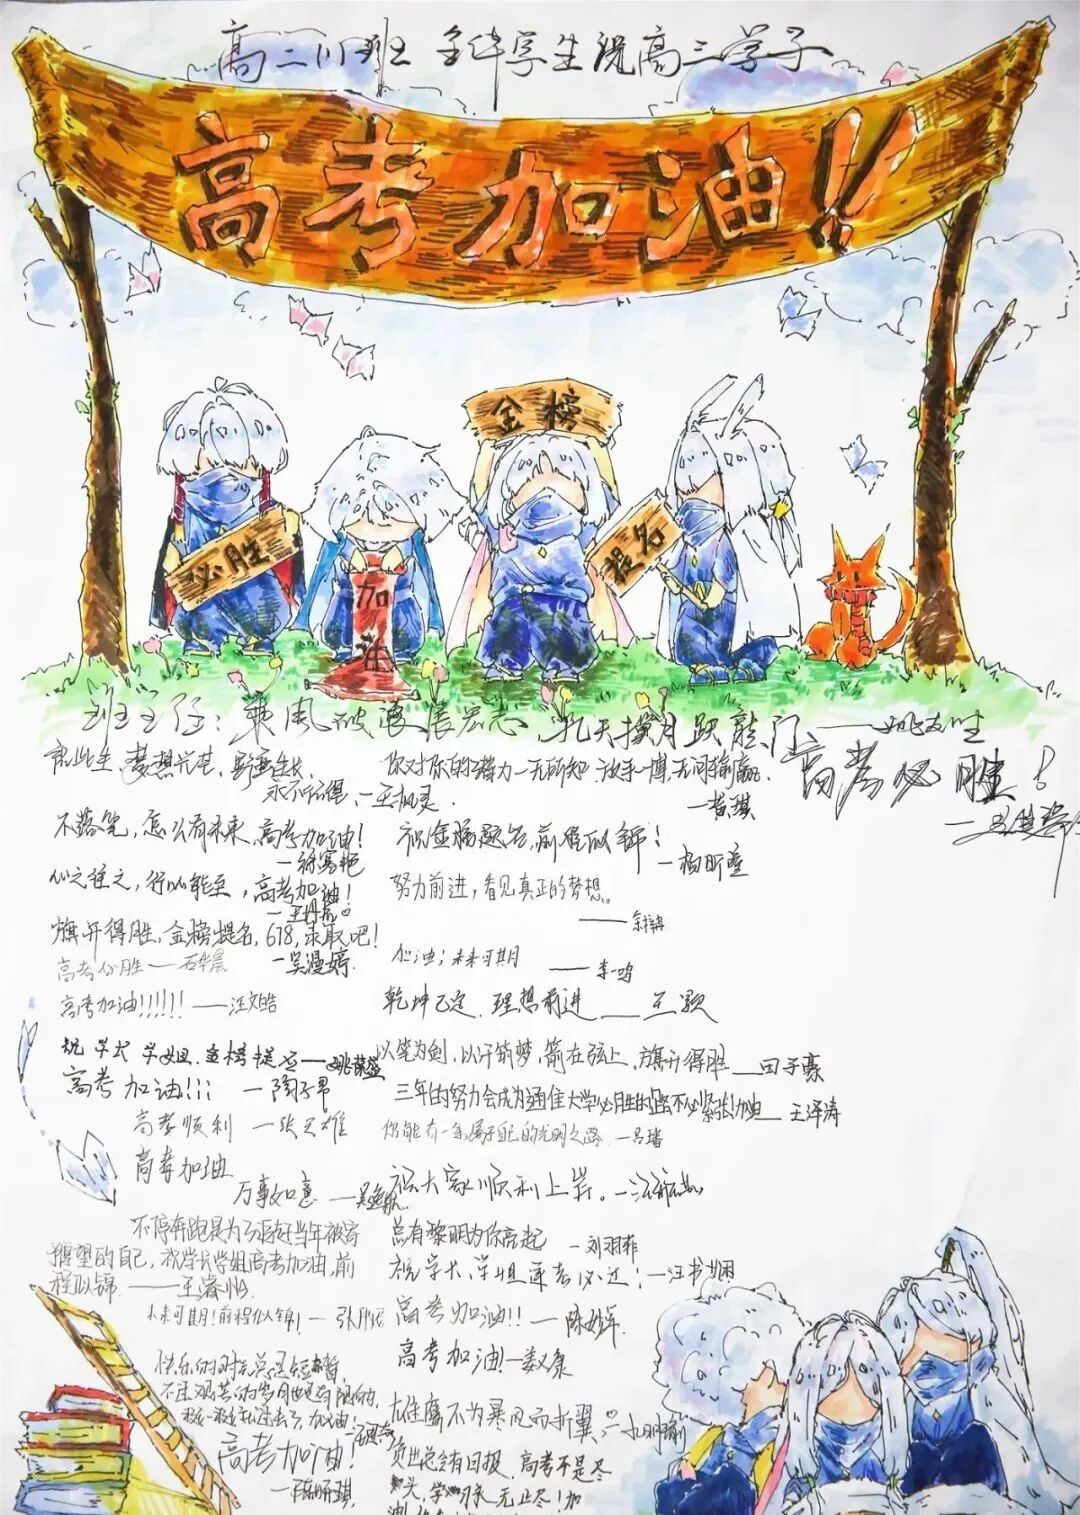 高二11班 全体学生祝高三学子
高考加油!!
金榜
必胜
提名
加油
班主任：乘风破浪展宏志，扎天揽月跃龙门
梦想
永不言
你对你的潜力一无所知 放手一博，无问输赢
一黄琪
高考必胜!
不落笔，怎么有未来，高考加油!
祝金榜题名，前程似锦!
一杨昕
心之往之，行以能至，高考加油!
一王丹
努力前进，看见真正的梦想。
旗开得胜，金榜提名，678，录取吧!
一吴漫婷
高考必胜——石华晨
加油；未来可期——李一鸣
高考加油!!!!!!——汪文皓
乾坤已定 理想前进——王颢
祝学长学姐金榜提名——姚
以笔为剑，以汗筑梦，箭在弦上，旗开得胜——田子豪
高考加油!!!一陶子昂
三年的努力会成为通往大学必胜的路不必紧张!加油——王泽涛
高考顺利 一张天雄
你能有一条属于自己的光明之路 一吕
高考加油
万事如意 一吴
祝大家顺利上岸。
不停奔跑是为了追赶当年被寄
予厚望的自己，祝学长学姐高考加油，前
程似锦——王睿
总有黎明为你亮起 一刘羽菲
祝学长、学姐逢考必过！一汪书
未来可期!前程似锦!一张
高考加油!!一陈
高考加油!一数康
快乐的时光总是短暂
不过艰苦的岁月也是有限的，
加油!
雄鹰不为暴风而折翼
高考加油!
一陈昕琪
总会有回报，高考不是尽
头，学习永无止尽!加
油